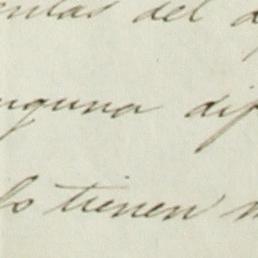 entas del
nguna dif
lo tienen